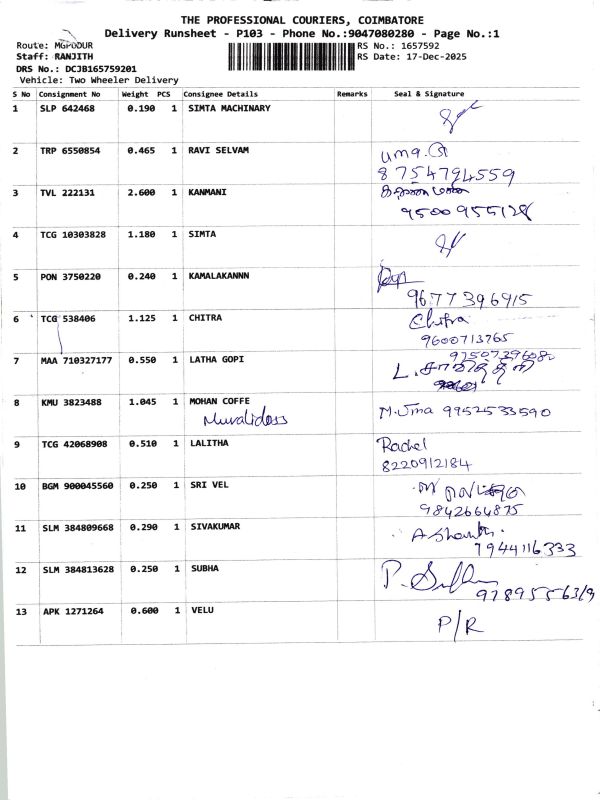 THE PROFESSIONAL COURIERS, COIMBATORE
Delivery Runsheet - P103 - Phone No.:9047080280 - Page No.:1
Route: MGPUDUR
RS No.: 1657592
Staff: RANJITH
RS Date: 17-Dec-2025
DRS No.: DCJB165759201
Vehicle: Two Wheeler Delivery
S No Consignment No Weight PCS Consignee Details Remarks Seal & Signature
1 SLP 642468 0.190 1 SIMTA MACHINARY
2 TRP 6550854 0.465 1 RAVI SELVAM
8754794559
3 TVL 222131 2.600 1 KANMANI
9500955128
4 TCG 10303828 1.180 1 SIMTA
5 PON 3750220 0.240 1 KAMALAKANNN
9677396915
6 TCG 538406 1.125 1 CHITRA Chitra
9600713765
7 MAA 710327177 0.550 1 LATHA GOPI
8 KMU 3823488 1.045 1 MOHAN COFFE
Muralidoss M.Uma 9952533590
9 TCG 42068908 0.510 1 LALITHA Rachel
8220912184
10 BGM 900045560 0.250 1 SRI VEL
9842664875
11 SLM 384809668 0.290 1 SIVAKUMAR
7944116333
12 SLM 384813628 0.250 1 SUBHA
13 APK 1271264 0.600 1 VELU P/R